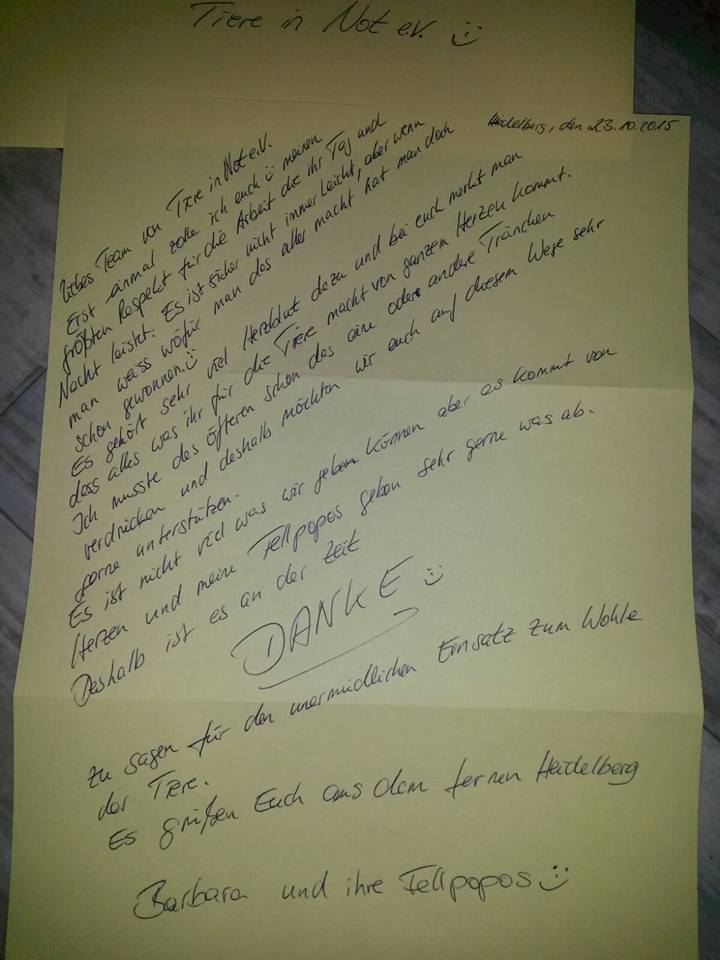 Tiere in Not e.V. :)
Heidelberg, den 23.10.2015
Liebes Team von Tiere in Not e.V.
Erst einmal zolle ich euch :) meinen
größten Respekt für die Arbeit die ihr Tag und
Nacht leistet. Es ist sicher nicht immer leicht, aber wenn
man weiss wofür man das alles macht hat man doch
schon gewonnen :)
Es gehört sehr viel Herzblut dazu und bei euch merkt man
dass alles was ihr für die Tiere macht von ganzem Herzen kommt.
Ich musste des öfteren schon das eine oder andere Tränchen
verdrücken und deshalb möchten wir euch auf diesem Wege sehr
gerne unterstützen.
Es ist nicht viel was wir geben können aber es kommt von
Herzen und meine Fellpopos geben sehr gerne was ab.
Deshalb ist es an der Zeit
DANKE :)
zu sagen für den unermüdlichen Einsatz zum Wohle
der Tiere.
Es grüßen Euch aus dem fernen Heidelberg
Barbara und ihre Fellpopos :)